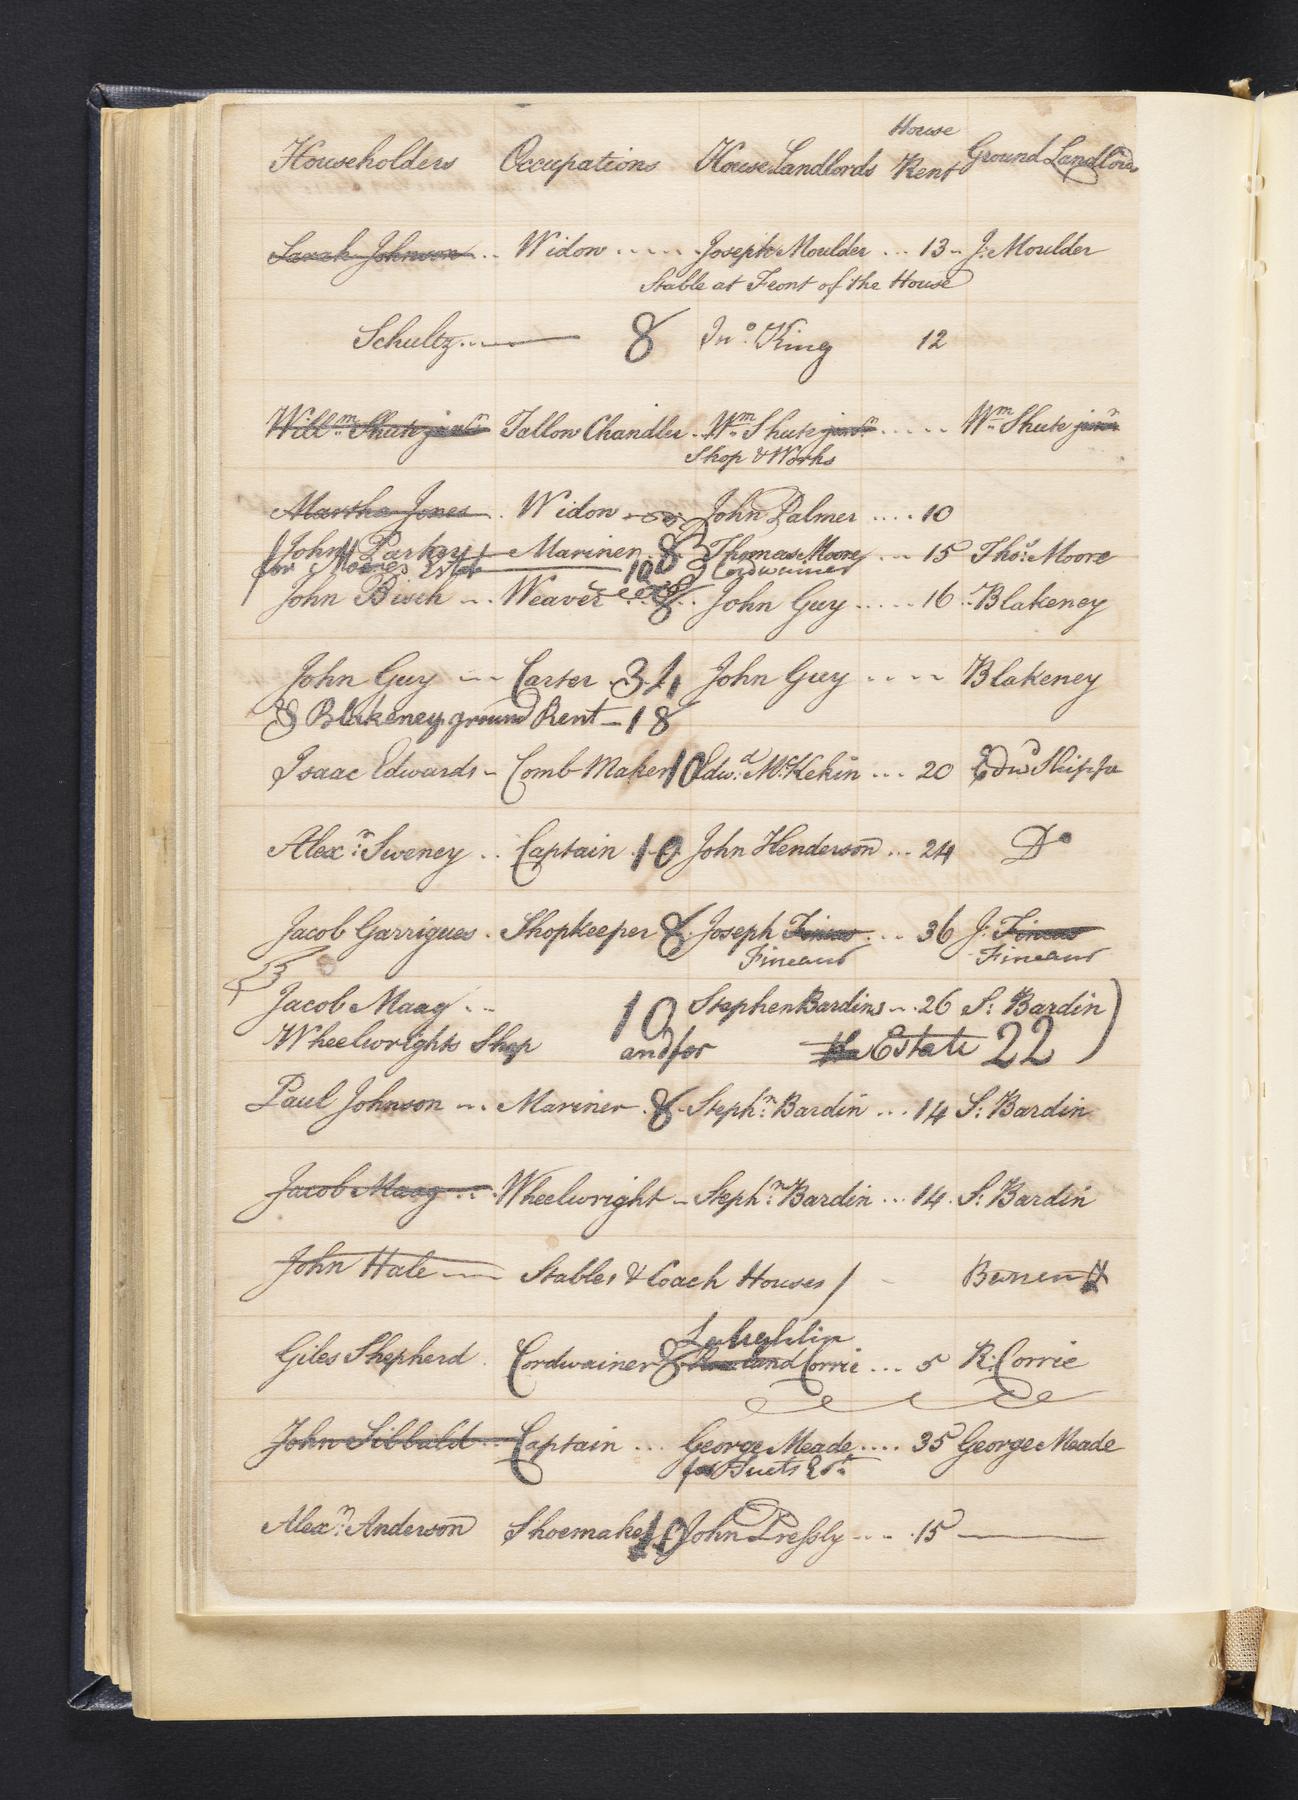 House
Householders Occupations House Landlords Rent Ground Landlords
Sarah Johnson .. Widow ..... Joseph Moulder ... 13 .. J: Moulder
Stable at Front of the House
Schultz 8 Jno. King 12
Willm. Shute junr. Tallow Chandler . Wm. Shute junr. ..... Wm. Shute junr.
Shop & Works
Martha Jones . Widow John Palmer .... 10
John Parker Mariner . 8 Thomas Moore ... 15 Thos. Moore
for Moores Estat 10 Cordwainer
John Bisch ... Weaver 8 .. John Guy ..... 16 .. Blakeney
John Guy --- Carter . John Guy .... Blakeney
& Blakeney ground Rent - 18
Isaac Edwards - Comb Maker 10 Edwd. McKekin ... 20 Edwd Shippa
Alexr. Sweney .. Captain . 10 John Henderson ... 24 Do
Jacob Garrigues . Shopkeeper 8 . Joseph ... 36 J.
Fineaur Fineaur
Jacob Maag ... 10 Stephen Bardins ... 26 S: Bardin
Wheelwrights Shop and for the Estate 22
Paul Johnson ... Mariner . 8 . Stephn: Bardin ... 14 S: Bardin
Jacob Maag ... Wheelwright - Stephn: Bardin ... 14 . S: Bardin
John Hale Stables & Coach Houses /
Giles Shepherd . Cordwainer 8 Rowland Corrie ... 5 R: Corrie
John Sibbald .. Captain ... George Meade .... 35 George Meade
for
Alexr: Anderson Shoemaker 10 John Pressly .... 15